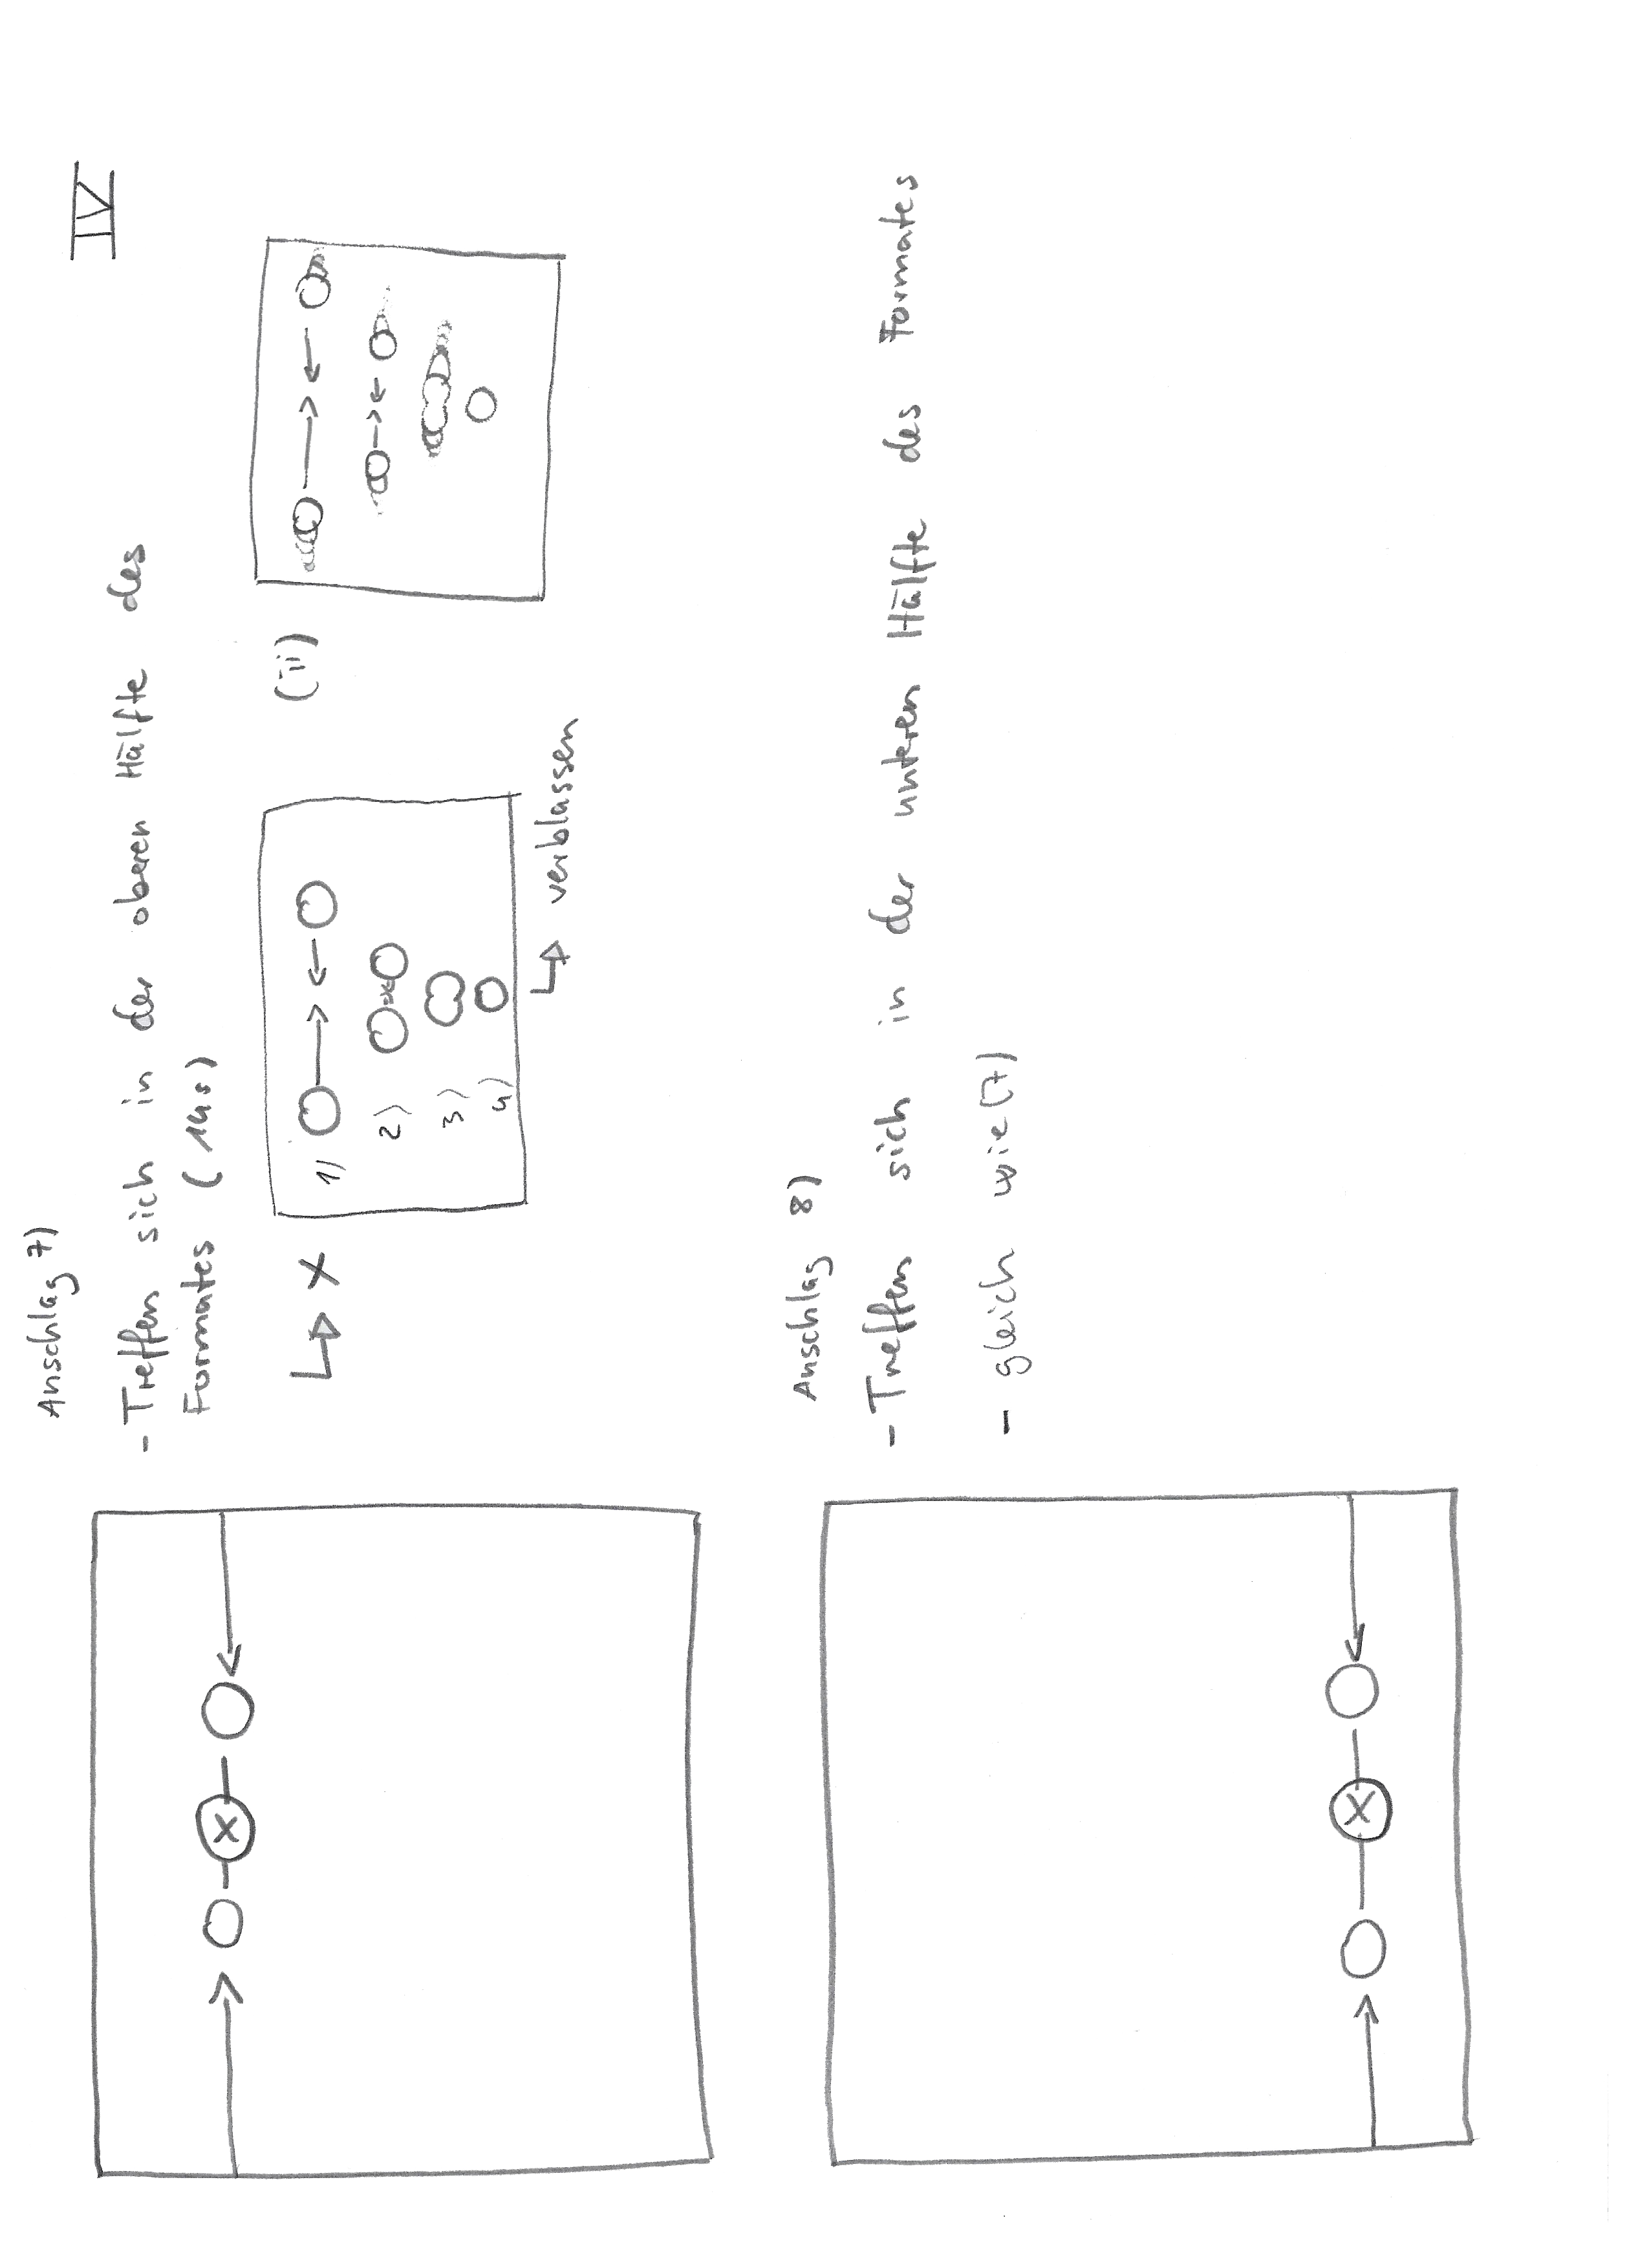 IV
Anschlag 7)
- Treffen sich in der oberen Hälfte des
Formates
x
1)
2)
3)
4)
verblassen
(ii)
Anschlag 8)
- Treffen sich in der unteren Hälfte des Formates
- gleich wie (7)
x
x